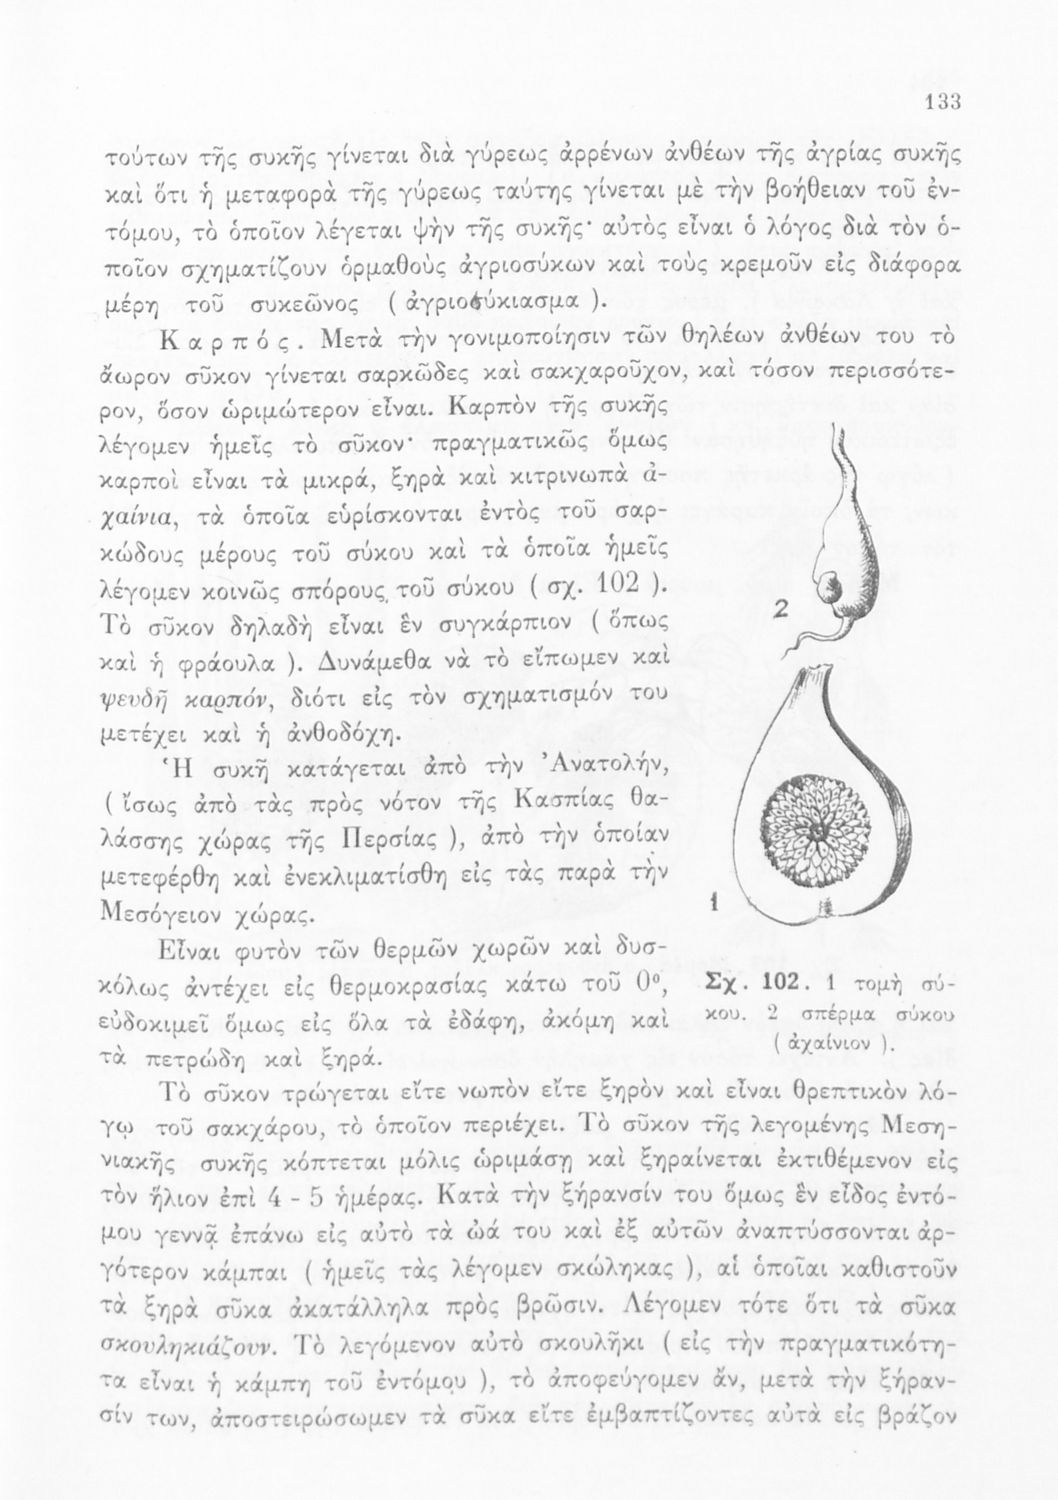 133
τούτων τῆς συκῆς γίνεται διὰ γύρεως ἀρρένων ἀνθέων τῆς ἀγρίας συκῆς
καὶ ὅτι ἡ μεταφορὰ τῆς γύρεως ταύτης γίνεται μὲ τὴν βοήθειαν τοῦ ἐν-
τόμου, τὸ ὁποῖον λέγεται ψὴν τῆς συκῆς· αὐτὸς εἶναι ὁ λόγος διὰ τὸν ὁ-
ποῖον σχηματίζουν ὁρμαθοὺς ἀγριοσύκων καὶ τοὺς κρεμοῦν εἰς διάφορα
μέρη τοῦ συκεῶνος ( ἀγριοσύκιασμα ).
Καρπός. Μετὰ τὴν γονιμοποίησιν τῶν θηλέων ἀνθέων του τὸ
ἄωρον σῦκον γίνεται σαρκῶδες καὶ σακχαροῦχον, καὶ τόσον περισσότε-
ρον, ὅσον ὡριμώτερον εἶναι. Καρπὸν τῆς συκῆς
λέγομεν ἡμεῖς τὸ σῦκον· πραγματικῶς ὅμως
καρποὶ εἶναι τὰ μικρά, ξηρὰ καὶ κιτρινωπὰ ἀ-
χαίνια, τὰ ὁποῖα εὑρίσκονται ἐντὸς τοῦ σαρ-
κώδους μέρους τοῦ σύκου καὶ τὰ ὁποῖα ἡμεῖς
λέγομεν κοινῶς σπόρους τοῦ σύκου ( σχ. 102 ).
Τὸ σῦκον δηλαδὴ εἶναι ἓν συγκάρπιον ( ὅπως
καὶ ἡ φράουλα ). Δυνάμεθα νὰ τὸ εἴπωμεν καὶ
ψευδῆ καρπόν, διότι εἰς τὸν σχηματισμόν του
μετέχει καὶ ἡ ἀνθοδόχη.
Ἡ συκῆ κατάγεται ἀπὸ τὴν Ἀνατολήν,
( ἴσως ἀπὸ τὰς πρὸς νότον τῆς Κασπίας θα-
λάσσης χώρας τῆς Περσίας ), ἀπὸ τὴν ὁποίαν
μετεφέρθη καὶ ἐνεκλιματίσθη εἰς τὰς παρὰ τὴν
Μεσόγειον χώρας.
Εἶναι φυτὸν τῶν θερμῶν χωρῶν καὶ δυσ-
κόλως ἀντέχει εἰς θερμοκρασίας κάτω τοῦ 0°,
εὐδοκιμεῖ ὅμως εἰς ὅλα τὰ ἐδάφη, ἀκόμη καὶ
τὰ πετρώδη καὶ ξηρά.
2
1
Σχ. 102. 1 τομὴ σύ-
κου. 2 σπέρμα σύκου
( ἀχαίνιον ).
Τὸ σῦκον τρώγεται εἴτε νωπὸν εἴτε ξηρὸν καὶ εἶναι θρεπτικὸν λό-
γῳ τοῦ σακχάρου, τὸ ὁποῖον περιέχει. Τὸ σῦκον τῆς λεγομένης Μεση-
νιακῆς συκῆς κόπτεται μόλις ὡριμάσῃ καὶ ξηραίνεται ἐκτιθέμενον εἰς
τὸν ἥλιον ἐπὶ 4 - 5 ἡμέρας. Κατὰ τὴν ξήρανσίν του ὅμως ἓν εἶδος ἐντό-
μου γεννᾷ ἐπάνω εἰς αὐτὸ τὰ ὠά του καὶ ἐξ αὐτῶν ἀναπτύσσονται ἀρ-
γότερον κάμπαι ( ἡμεῖς τὰς λέγομεν σκώληκας ), αἱ ὁποῖαι καθιστοῦν
τὰ ξηρὰ σῦκα ἀκατάλληλα πρὸς βρῶσιν. Λέγομεν τότε ὅτι τὰ σῦκα
σκουληκιάζουν. Τὸ λεγόμενον αὐτὸ σκουλῆκι ( εἰς τὴν πραγματικότη-
τα εἶναι ἡ κάμπη τοῦ ἐντόμου ), τὸ ἀποφεύγομεν ἄν, μετὰ τὴν ξήραν-
σίν των, ἀποστειρώσωμεν τὰ σῦκα εἴτε ἐμβαπτίζοντες αὐτὰ εἰς βράζον